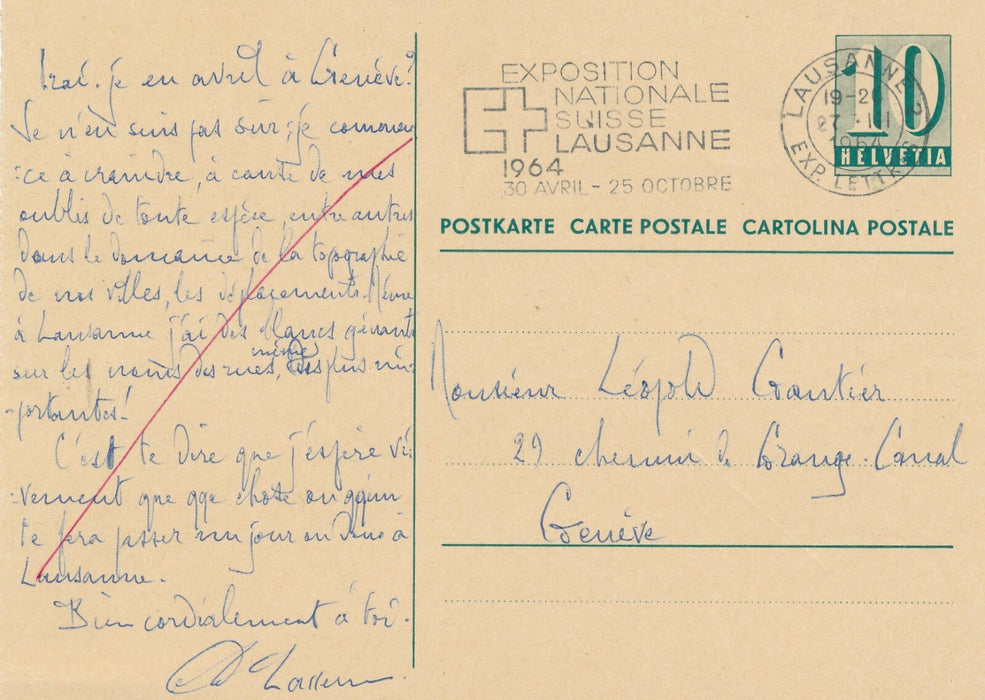 Irai-je en avril à Genève?
Je n'en suis pas sûr; je commen-
-ce à craindre, à cause de mes
oublis de toute espèce, entre autres
dans le domaine de la topographie
de nos villes, les déplacements. Même
à Lausanne j'ai des blancs gênants
sur les noms des rues, même des plus im-
-portantes!
C'est te dire que j'espère vi-
-vement que qqe chose ou qqun
te fera passer un jour ou deux à
Lausanne.
Bien cordialement à toi.
EXPOSITION
NATIONALE
SUISSE
LAUSANNE
1964
30 AVRIL - 25 OCTOBRE
LAUSANNE 2
19-20
27.III
1964
EXP. LETTRES
10
HELVETIA
POSTKARTE CARTE POSTALE CARTOLINA POSTALE
Monsieur Léopold Gautier
29 chemin de Grange-Canal
Genève